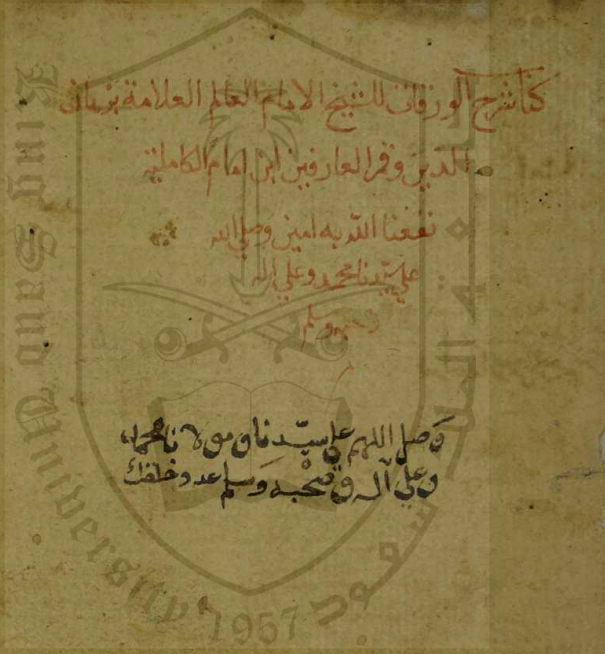 كتاب شرح الورقات للشيخ الامام العالم العلامة برهان
الدين وقمر العارفين ابن امام الكاملية
نفعنا الله به امين وصلى الله
على سيدنا محمد وعلى اله
وصحبه وسلم
وَصل اللهم على سيّدنا ومولانا محمد
وعلى آله وصَحْبه وَسلم عدد خلقك
King Saud University
1957